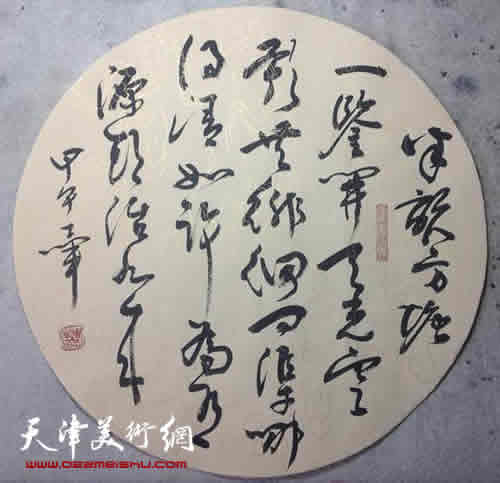 半畝方塘
一鑒開天光雲
影共徘徊問渠哪
得清如許為有
源頭活水來
甲午
天津美術網
www.022meishu.com